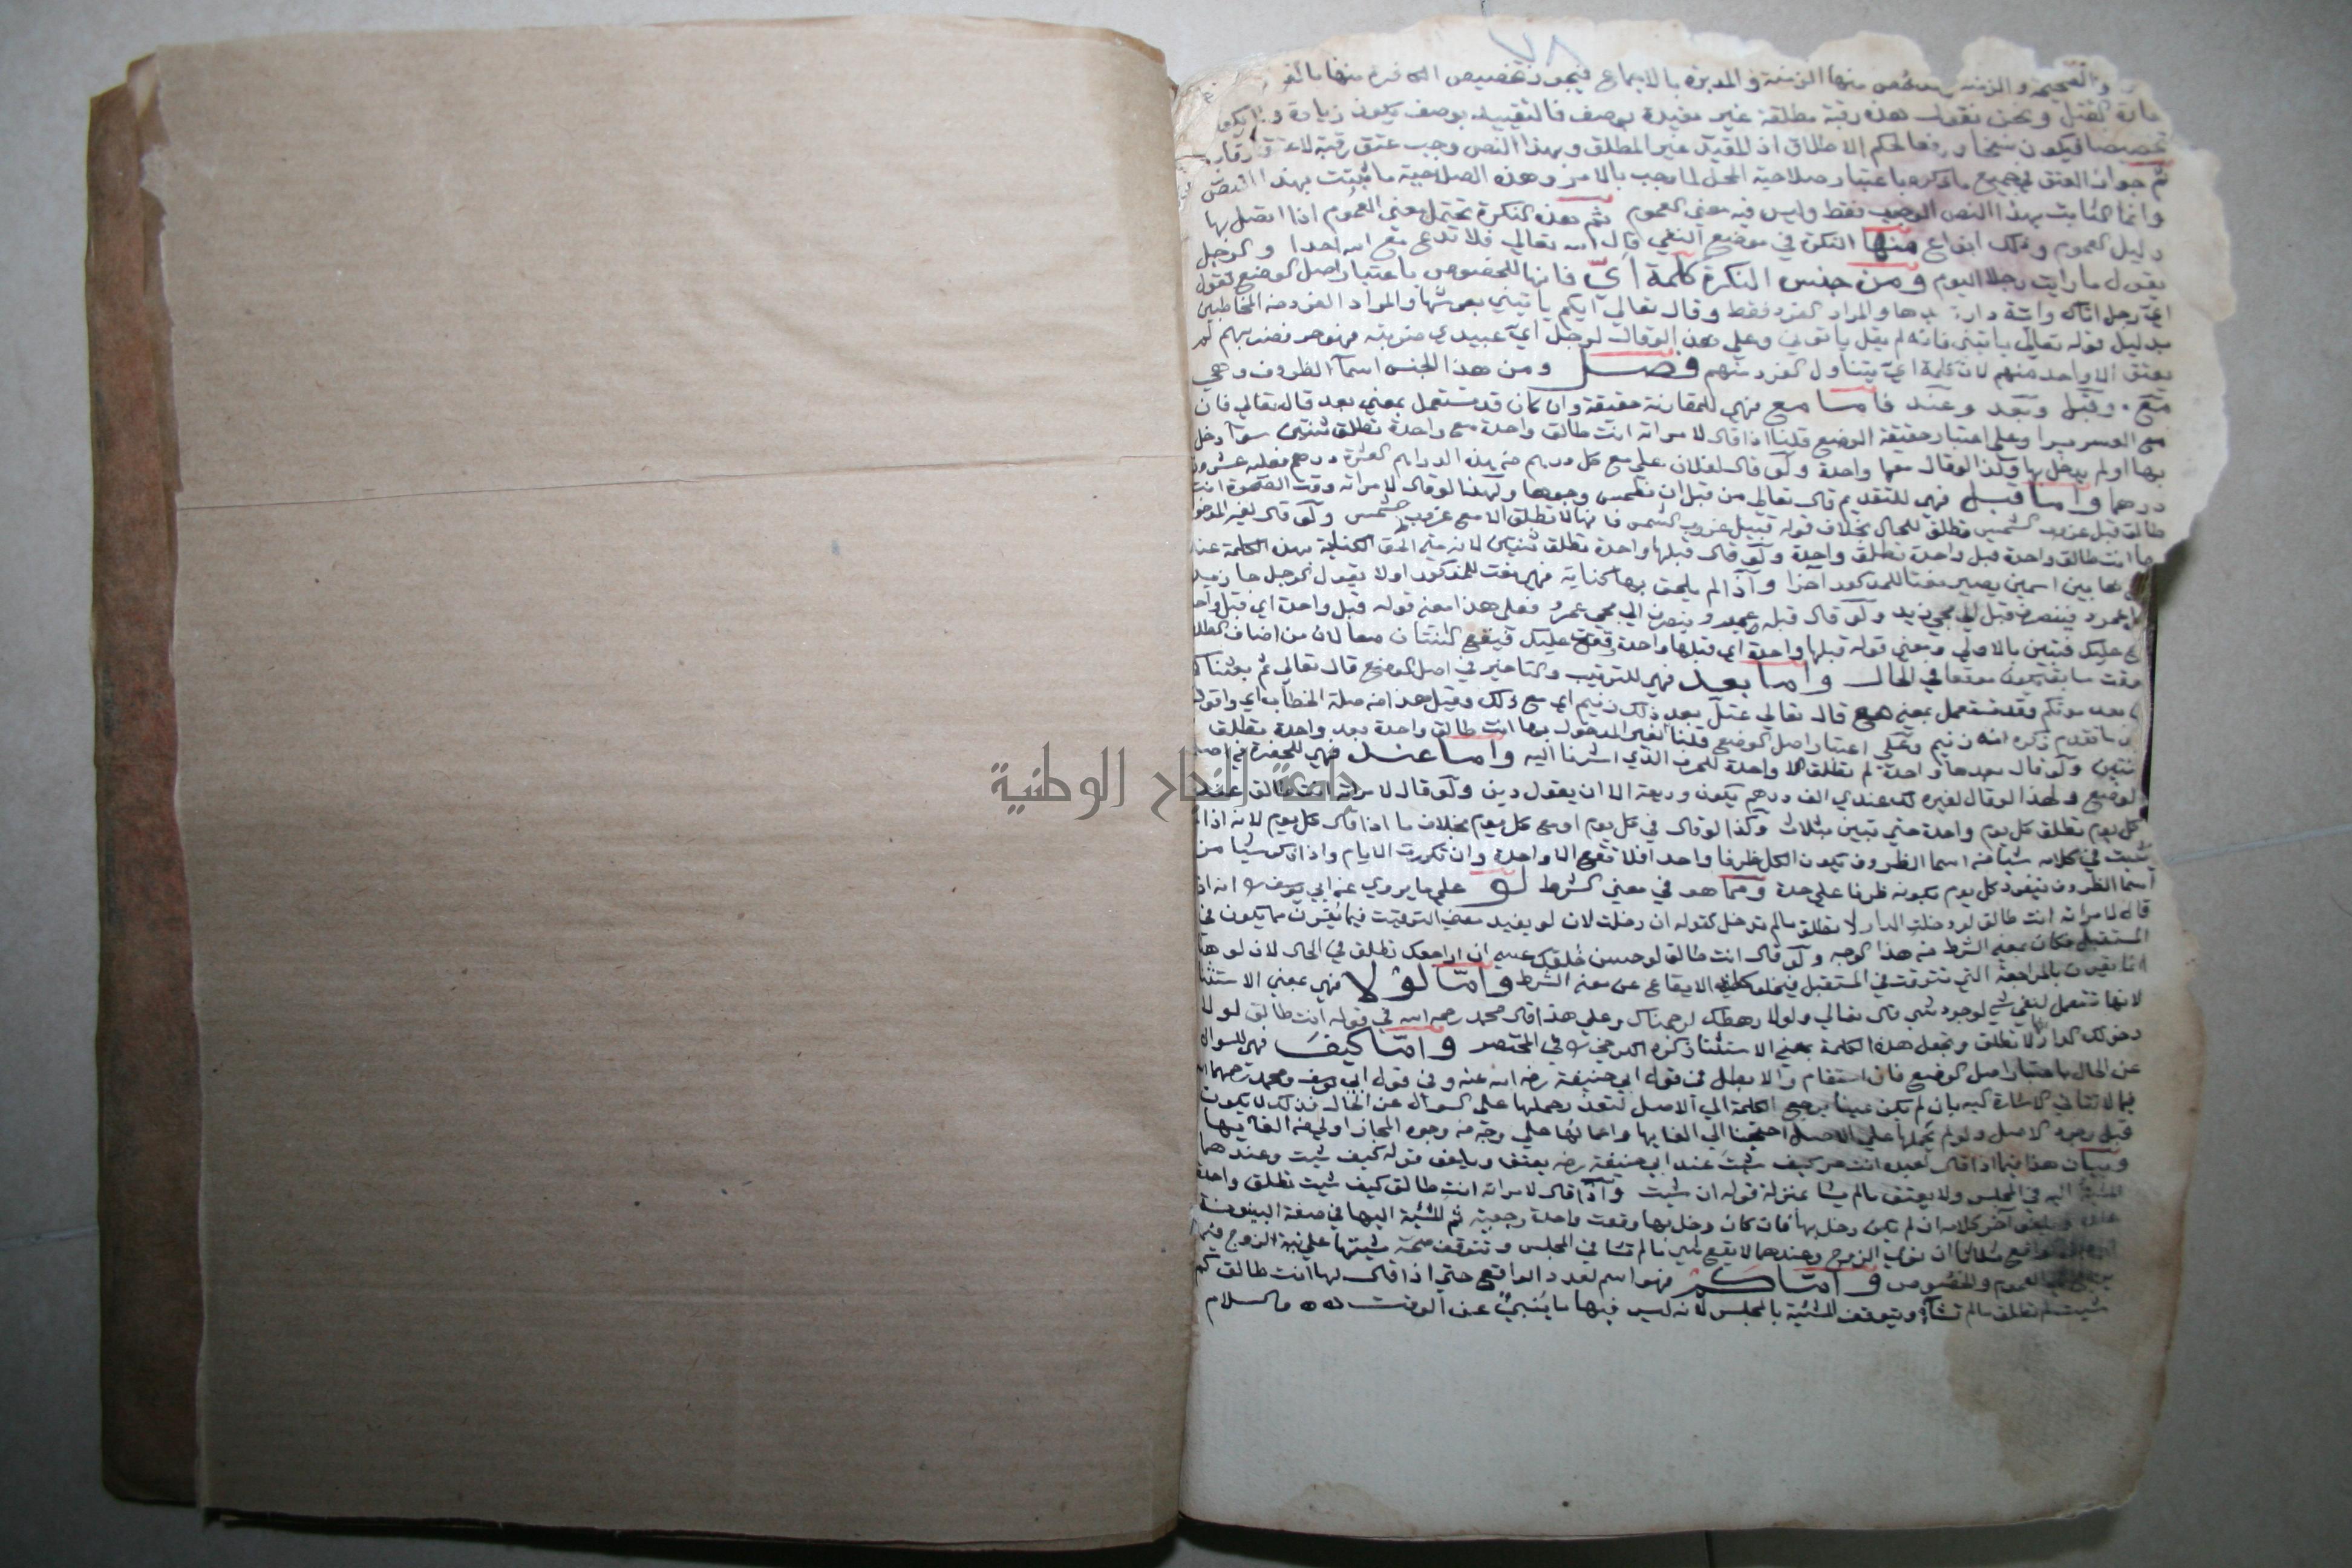 ٧٨
والصحيحة والزمنة وقد خص منها الزمنة والمدبرة بالاجماع فيجوز تخصيص الكافرة منها بالقياس
كفارة القتل ونحن نقول هذه رقبة مطلقة غير مقيدة بوصف فالتقييد بوصف يكون زيادة ولا يكون
تخصيصا فيكون نسخا ورفعا لحكم الاطلاق اذ المقيد غير المطلق وبهذا النص وجب عتق رقبة لا عتق رقاب
ثم جواز العتق في جميع ما ذكره باعتبار صلاحية المحل لما وجب بالامر وهذه الصلاحية ما ثبتت بهذا النص
وانما الثابت بهذا النص الوجوب فقط وليس فيه معني العموم ثم هذه النكرة تحتمل معني العموم اذا اتصل بها
دليل العموم وذلك انواع منها النكرة في موضع النفي قال الله تعالي فلا تدعو مع الله احدا والرجل
يقول ما رايت رجلا اليوم ومن جنس النكرة كلمة اي فانها للخصوص باعتبار اصل الوضع تقول
اي رجل اتاك واية دار تريدها والمراد الفرد فقط وقال تعالي ايكم ياتيني بعرشها والمراد الفرد من المخاطبين
بدليل قوله تعالي ياتيني فانه لم يقل ياتوني وعلي هذا لو قال لرجل اي عبيدي ضربته فهو حر فضربهم لم
يعتق الا واحد منهم لان كلمة اي يتناول الفرد منهم فصل ومن هذا الجنس اسمآ الظروف وهي
مع وقبل وبعد وعند فاما مع فهي للمقارنة حقيقة وان كان قد تستعمل بمعني بعد قال تعالي فان
مع العسر يسرا وعلي اعتبار حقيقة الوضع قلنا اذا قال لامراته انت طالق واحدة مع واحدة تطلق ثنتين سوآ دخل
بها اولم يدخل بها وكذا لو قال معها واحدة ولو قال لفلان علي مع كل درهم من هذه الدراهم العشرة درهم فعليه عشرون
درهما واما قبل فهي للتقديم قال تعالي من قبل ان نطمس وجوها ولهذا لو قال لامراته وقت الضحوة انت
طالق قبل غروب الشمس تطلق للحال بخلاف قوله قبيل غروب الشمس فانها لا تطلق الا مع غروب الشمس ولو قال لغير المدخول
بها انت طالق واحدة قبل واحدة تطلق واحدة ولو قال قبلها واحدة تطلق ثنتين لانه متي الحق الكناية بهذه الكلمة عند
بها بين اسمين يصير نعتا للمذكور آخرا واذا لم يلحق بها كناية فهي نعت للمذكور اولا يقول الرجل جا زيد
قبل عمرو فينصرف قبل الي مجي زيد ولو قال قبله عمرو ينصرف الي مجي عمرو فعلي هذا معني قوله قبل واحدة اي قبل واحدة
تقع عليك فتبين بالاولي ومعني قوله قبلها واحدة اي قبلها واحدة وقعت عليك فيقع الثنتان معا لان من اضاف الطلاق
وقت سابق يكون موقعا في الحال واما بعد فهي للترتيب والتاخير في اصل الوضع قال تعالي ثم بعثناكم
من بعد موتكم فقد تستعمل بمعني مع قال تعالي عتل بعد ذلك زنيم اي مع ذلك وقيل هذا من صلة الخطاب اي واقول
بعد ما تقدم ذكره انه زنيم وعلي اعتبار اصل الوضع قلنا لغير المدخول بها انت طالق واحدة بعد واحدة تطلق
ثنتين ولو قال بعدها واحدة لم تطلق الا واحدة للحرف الذي اشرنا اليه واما عند فهي للحضرة في اصل
الوضع ولهذا لو قال لغيره لك عندي الف درهم يكون وديعة الا ان يقول دين ولو قال لامراته انت طالق عند
كل يوم تطلق كل يوم واحدة حتي تبين بثلاث وكذا لو قال في كل يوم او مع كل يوم بخلاف ما اذا قال كل يوم لانه اذا لم
يثبت في كلامه شيا من اسما الظروف يكون الكل ظرفا واحدا فلا تقع الا واحدة وان تكررت الايام واذا ذكر شيا من
اسما الظروف يتفرد كل يوم بكونه ظرفا علي حدة ومما هو في معني الشرط لو علي ما يروي عن ابي يوسف انه اذا
قال لامراته انت طالق لو دخلت الدار لا تطلق ما لم تدخل كقوله ان دخلت لان لو يفيد معني التوقيت فيما يقرن به مما يكون في
المستقبل فكان بمعني الشرط من هذا الوجه ولو قال انت طالق لو حسن خلقك عسي ان اراجعك تطلق في الحال لان لو هنا
انما يقرن بالمراجعة التي تتوقت في المستقبل فيخلو كلمة الايقاع عن معني الشرط واما لولا فهي بمعني الاستثنا
لانها تستعمل لنفي شي لوجود شي قال تعالي ولولا رهطك لرجمناك وعلي هذا قال محمد رحمه الله في قوله انت طالق لولا
دخولك الدار لا تطلق وتجعل هذه الكلمة بمعني الاستثنا ذكره الكرخي في المختصر واما كيف فهي للسوال
عن الحال باعتبار اصل الوضع فان استقام والا بطل في قول ابي حنيفة رضه الله عنه وفي قول ابي يوسف ومحمد رحمهما الله
فيما لا تتاتي الاشارة اليه بان لم يكن عينا يرجع الكلمة الي الاصل لتعذر حملها علي السوال عن الحال فذلك لا يكون
قبل وجود الاصل ولو لم نحملها علي الاصل احتجنا الي الغايها واعمالها علي وجه من وجوه المجاز اولي من الغآئها
وبيان هذا فيما اذا قال لعبده انت حر كيف شئت عند ابي حنيفة رضه يعتق ويلغو قوله كيف شيت وعندهما
المشية اليه في المجلس ولا يعتق ما لم يشا بمنزلة قوله ان شيت واذا قال لامراته انت طالق كيف شيت تطلق واحدة
ويلغو آخر كلامه ان لم يكن دخل بها فان كان دخل بها وقعت واحدة رجعية ثم المشية اليها في صفة البينونة
ثلاثا ان نوي الزوج وعندهما لا يقع شي ما لم تشا في المجلس وتتوقف صحة مشيتها علي نية الزوج فيما
العموم والخصوص واما كم فهو اسم لعدد الواقع حتي اذا قال لها انت طالق كم
شيت لم تطلق ما لم تشآء ويتوقف المشية بالمجلس لانه ليس فيها ما ينبئ عن الوقت والسلام
جامعة النجاح الوطنية